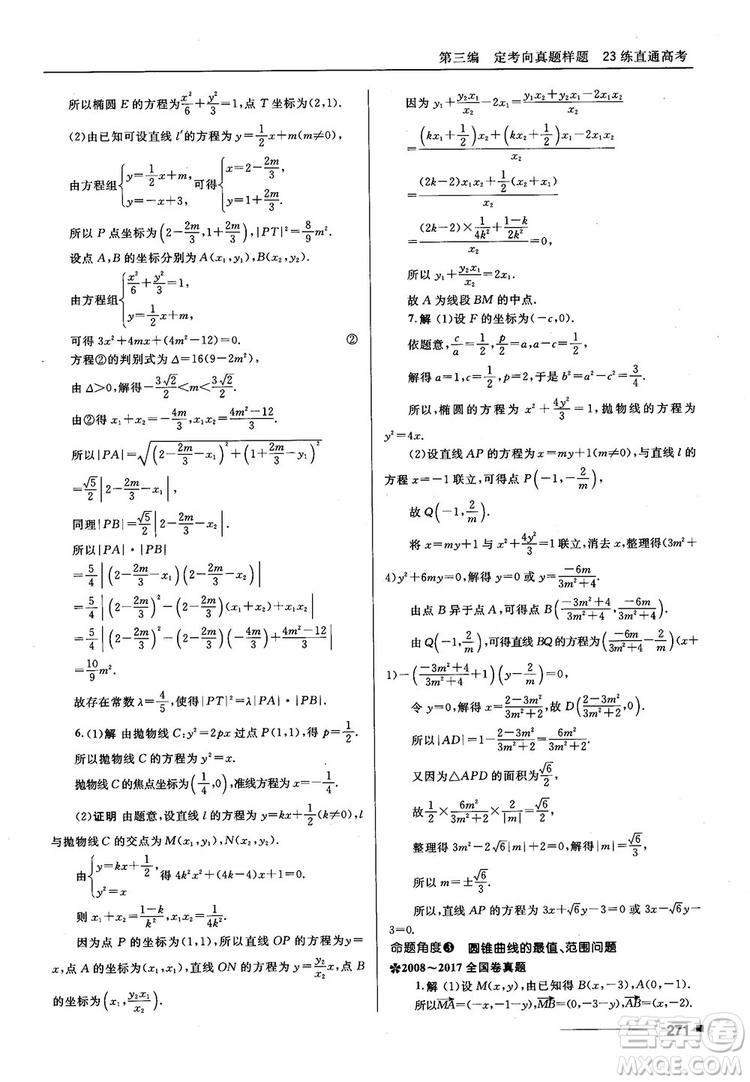 第三编 定考向真题样题 23练直通高考
所以椭圆 E 的方程为 x²/6+y²/3=1,点 T 坐标为(2,1).
(2)由已知可设直线 l′的方程为 y=1/2x+m(m≠0),
由方程组{y=1/2x+m, y=-x+3, 可得{x=2-2m/3, y=1+2m/3.
所以 P 点坐标为(2-2m/3,1+2m/3),|PT|²=8/9m².
设点 A,B 的坐标分别为 A(x₁,y₁),B(x₂,y₂).
由方程组{x²/6+y²/3=1, y=1/2x+m,
可得 3x²+4mx+(4m²-12)=0. ②
方程②的判别式为 Δ=16(9-2m²).
由 Δ>0,解得-3√2/2<m<3√2/2.
由②得 x₁+x₂=-4m/3,x₁x₂=(4m²-12)/3.
所以|PA|=√((2-2m/3-x₁)²+(1+2m/3-y₁)²)
=√5/2|2-2m/3-x₁|,
同理|PB|=√5/2|2-2m/3-x₂|.
所以|PA|·|PB|
=5/4|(2-2m/3-x₁)(2-2m/3-x₂)|
=5/4|(2-2m/3)²-(2-2m/3)(x₁+x₂)+x₁x₂|
=5/4|(2-2m/3)²-(2-2m/3)(-4m/3)+(4m²-12)/3|
=10/9m².
故存在常数 λ=4/5,使得|PT|²=λ|PA|·|PB|.
6.(1)解 由抛物线 C:y²=2px 过点 P(1,1),得 p=1/2.
所以抛物线 C 的方程为 y²=x.
抛物线 C 的焦点坐标为(1/4,0),准线方程为 x=-1/4.
(2)证明 由题意,设直线 l 的方程为 y=kx+1/2(k≠0),l
与抛物线 C 的交点为 M(x₁,y₁),N(x₂,y₂).
由{y=kx+1/2, y²=x 得 4k²x²+(4k-4)x+1=0.
则 x₁+x₂=(1-k)/k²,x₁x₂=1/4k².
因为点 P 的坐标为(1,1),所以直线 OP 的方程为 y=x,点
A 的坐标为(x₁,x₁).直线 ON 的方程为 y=y₂/x₂x,点 B
的坐标为(x₁,y₂x₁/x₂).
因为 y₁+y₂x₁/x₂-2x₁=(y₁x₂+y₂x₁-2x₁x₂)/x₂
=((kx₁+1/2)x₂+(kx₂+1/2)x₁-2x₁x₂)/x₂
=((2k-2)x₁x₂+1/2(x₂+x₁))/x₂
=((2k-2)×1/4k²+(1-k)/2k²)/x₂=0,
所以 y₁+y₂x₁/x₂=2x₁.
故 A 为线段 BM 的中点.
7.解 (1)设 F 的坐标为(-c,0).
依题意,c/a=1/2,p/2=a,a-c=1/2,
解得 a=1,c=1/2,p=2,于是 b²=a²-c²=3/4.
所以,椭圆的方程为 x²+4y²/3=1,抛物线的方程为
y²=4x.
(2)设直线 AP 的方程为 x=my+1(m≠0),与直线 l 的
方程 x=-1 联立,可得点 P(-1,-2/m),
故 Q(-1,2/m).
将 x=my+1 与 x²+4y²/3=1 联立,消去 x,整理得(3m²+
4)y²+6my=0,解得 y=0 或 y=-6m/(3m²+4).
由点 B 异于点 A,可得点 B((-3m²+4)/(3m²+4),-6m/(3m²+4)).
由 Q(-1,2/m),可得直线 BQ 的方程为(-6m/(3m²+4)-2/m)(x+
1)-((-3m²+4)/(3m²+4)+1)(y-2/m)=0,
令 y=0,解得 x=(2-3m²)/(3m²+2),故 D((2-3m²)/(3m²+2),0).
所以|AD|=1-(2-3m²)/(3m²+2)=6m²/(3m²+2).
又因为△APD 的面积为√6/2,
故1/2×6m²/(3m²+2)×2/|m|=√6/2,
整理得 3m²-2√6|m|+2=0,解得|m|=√6/3,
所以 m=±√6/3.
所以,直线 AP 的方程为 3x+√6y-3=0 或 3x-√6y
-3=0.
命题角度❸ 圆锥曲线的最值、范围问题
✽2008～2017 全国卷真题
1.解 (1)设 M(x,y),由已知得 B(x,-3),A(0,-1).
所以MA=(-x,-1-y),MB=(0,-3-y),AB=(x,-2).
271
答案圈
MXQE.COM